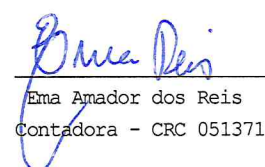 Ema Reis
Ema Amador dos Reis
Contadora - CRC 051371